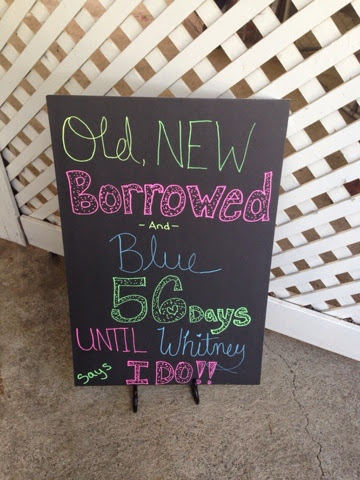 Old, NEW
Borrowed
- And -
Blue
56 Days
UNTIL Whitney
says I DO!!